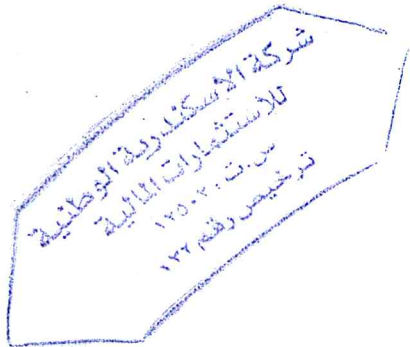 شركة الاسكندرية الوطنية
للاستثمارات المالية
س.ت : ١٢٥٠٢٠
ترخيص رقم ١٣٢